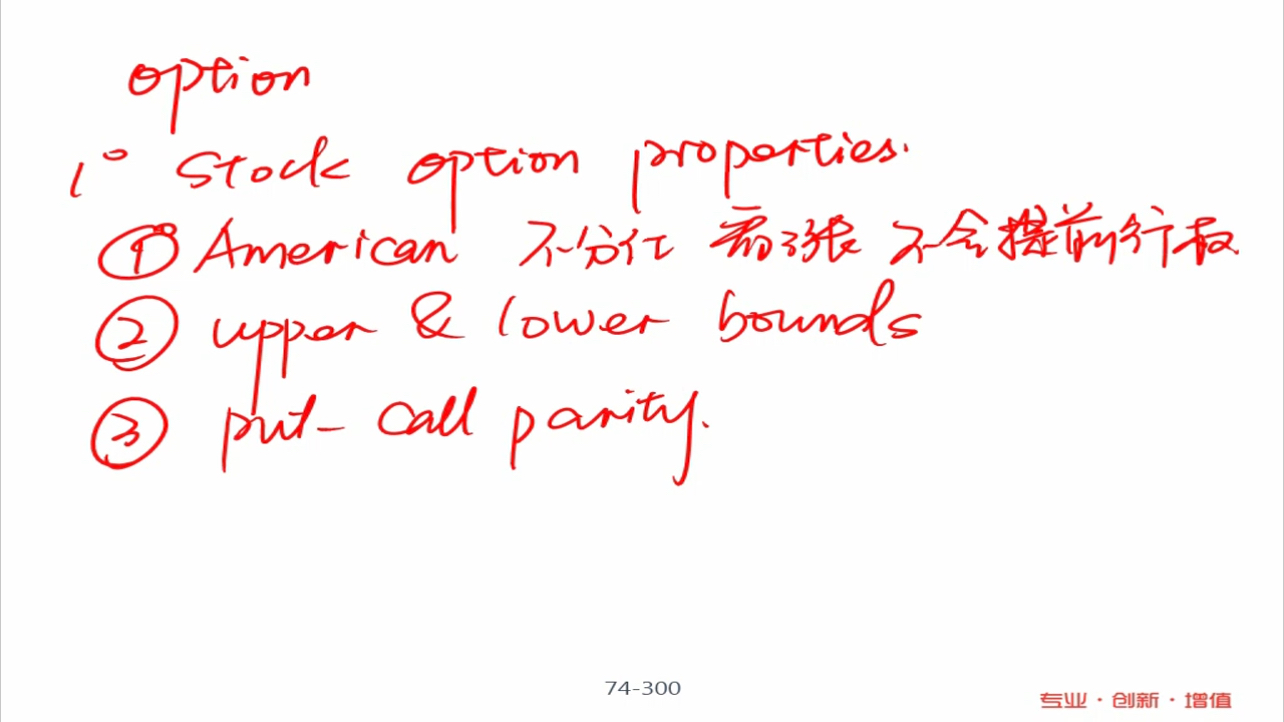 option
1° Stock option properties.
① American 不分红 看涨 不会提前行权
② upper & lower bounds
③ put-call parity.
74-300
专业·创新·增值